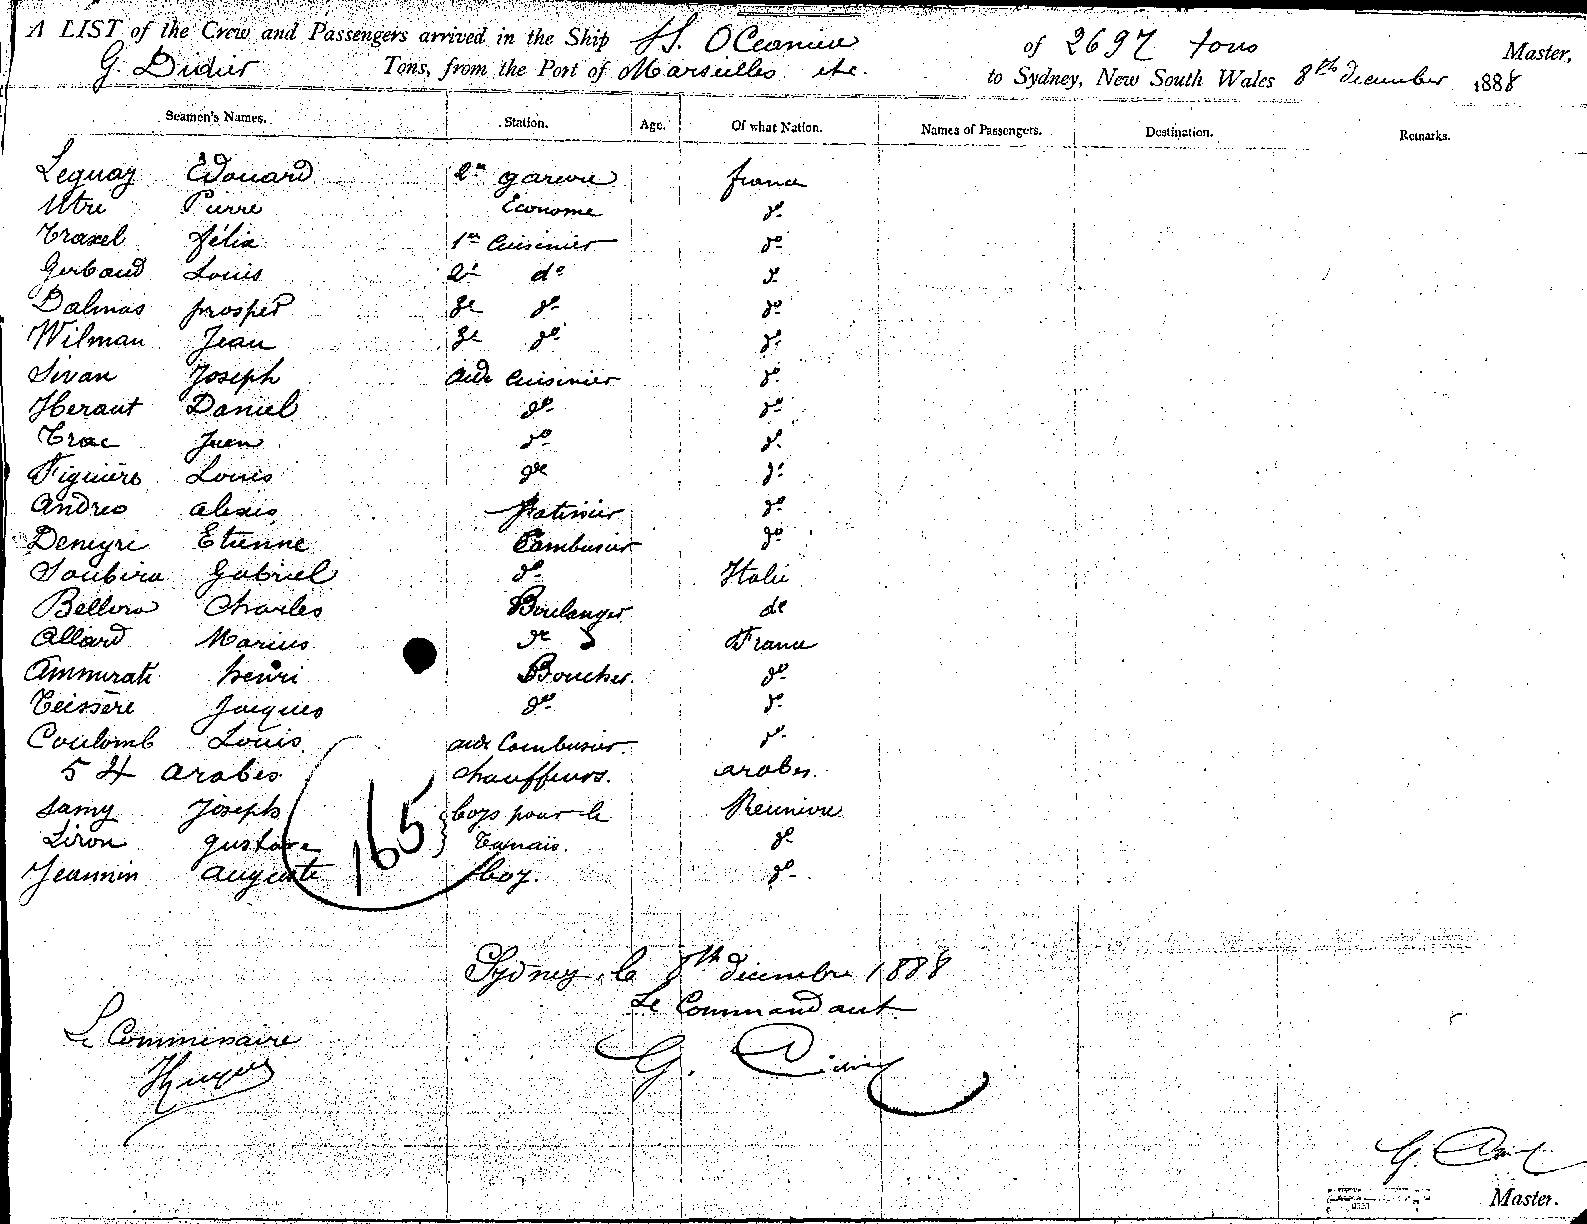 A LIST of the Crew and Passengers arrived in the Ship SS. Oceanien of 2697 tons Master,
G. Didier Tons, from the Port of Marseilles etc. to Sydney, New South Wales 8th december 1888
Seamen's Names. Station. Age. Of what Nation. Names of Passengers. Destination. Remarks.
Leguay Edouard 2e france
Utre Pierre Econome do
Traxel félix 1er Cuisinier do
Gerbaud Louis 2e do do
Dalmas prosper 3e do do
Wilman Jean 3e do do
Sivan Joseph aide Cuisinier do
Heraut Daniel do do
Trac Juen do do
Figuière Louis do do
Andreo alexis patissier do
Deneyri Etienne Cambusier do
Soubira Gabriel do Italie
Bellora Charles Boulanger do
Allard Marius do France
Ammirati henri Boucher do
Teissère Jacques do do
Coulomb Louis aide Cambusier do
54 arabes chauffeurs. arabes.
Samy Joseph } boys pour le Reunion
Liron gustave Tanaïs. do
Jeannin auguste boy. do
165
Sydney, le 8th décembre 1888
Le Commandant
Le Commissaire
G. Didier
G. Didier
Master.